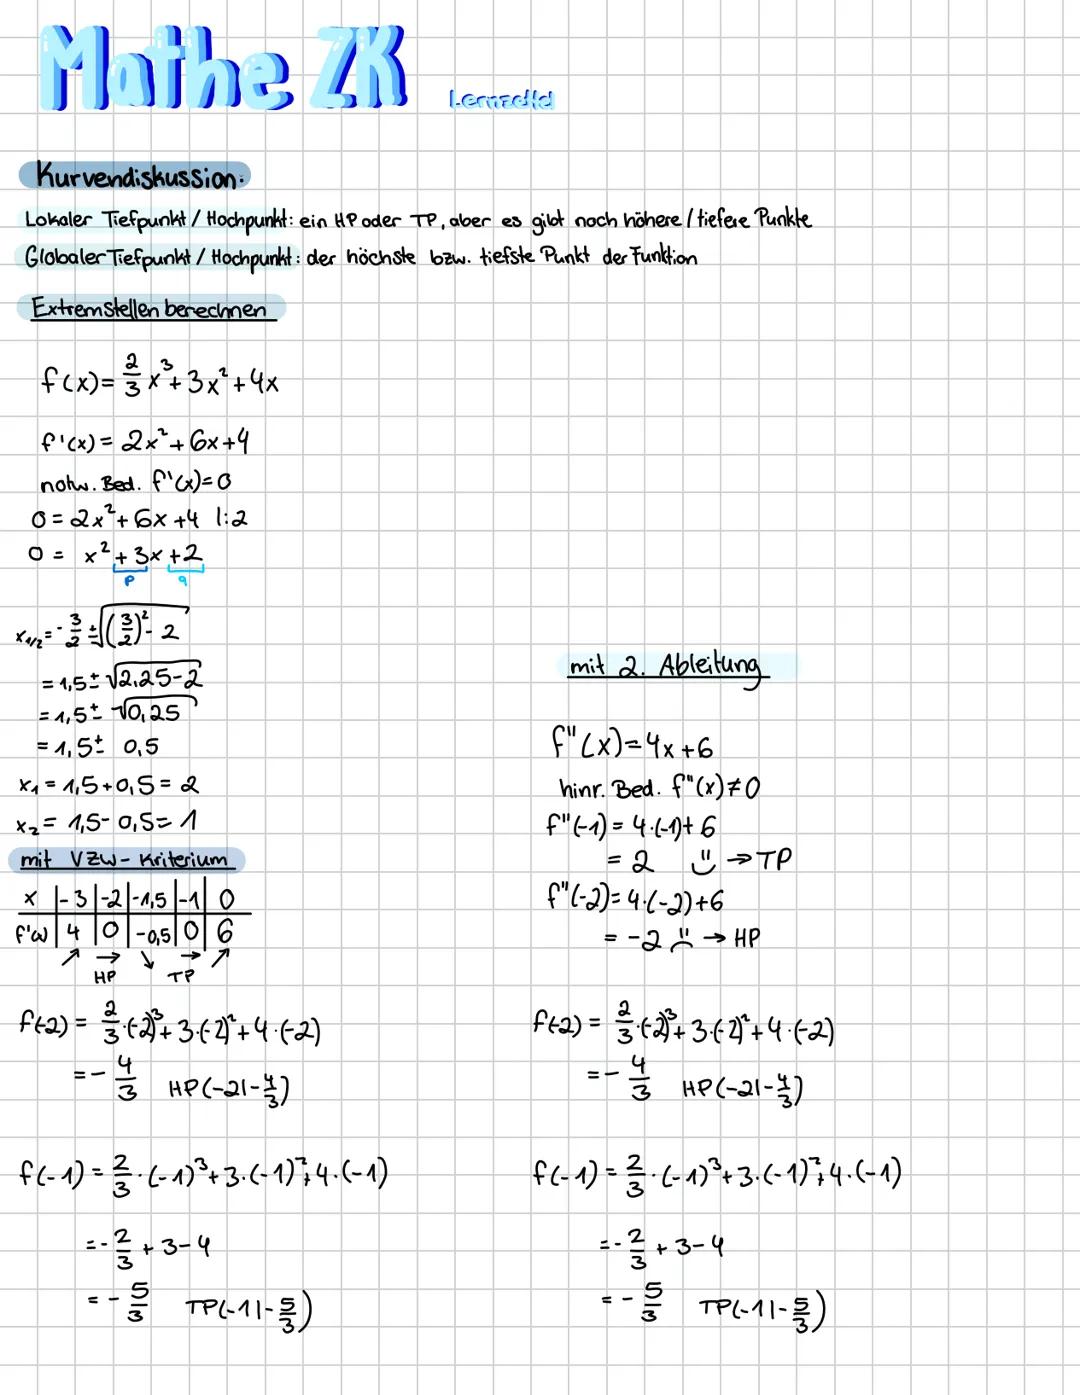 Mathe ZK
Lernzettel
Kurvendiskussion:
Lokaler Tiefpunkt / Hochpunkt: ein HP oder TP, aber es gibt noch höhere / tiefere Punkte
Globaler Tiefpunkt / Hochpunkt: der höchste bzw. tiefste Punkt der Funktion
Extremstellen berechnen
f(x)= 2/3 x³+3x²+4x
f'(x)= 2x²+6x+4
notw. Bed. f'(x)=0
0=2x²+6x+4 |:2
0= x²+3x+2
p q
x₁/₂=-3/2 ± √((3/2)²-2)
=1,5± √2,25-2
=1,5± √0,25
=1,5± 0,5
x₁=1,5+0,5=2
x₂=1,5-0,5=1
mit VZW-Kriterium
x |-3|-2|-1,5|-1|0
f'(x)|4|0|-0,5|0|6
↗ → ↘ → ↗
HP TP
f(-2)= 2/3·(-2)³+3·(-2)²+4·(-2)
=-4/3 HP(-2|-4/3)
f(-1)=2/3·(-1)³+3·(-1)²+4·(-1)
=-2/3+3-4
=-5/3 TP(-1|-5/3)
mit 2. Ableitung
f"(x)=4x+6
hinr. Bed. f"(x)≠0
f"(-1)=4·(-1)+6
=2 ⇒TP
f"(-2)=4·(-2)+6
=-2 → HP
f(-2)= 2/3·(-2)³+3·(-2)²+4·(-2)
=-4/3 HP(-2|-4/3)
f(-1)=2/3·(-1)³+3·(-1)²+4·(-1)
=-2/3+3-4
=-5/3 TP(-1|-5/3)